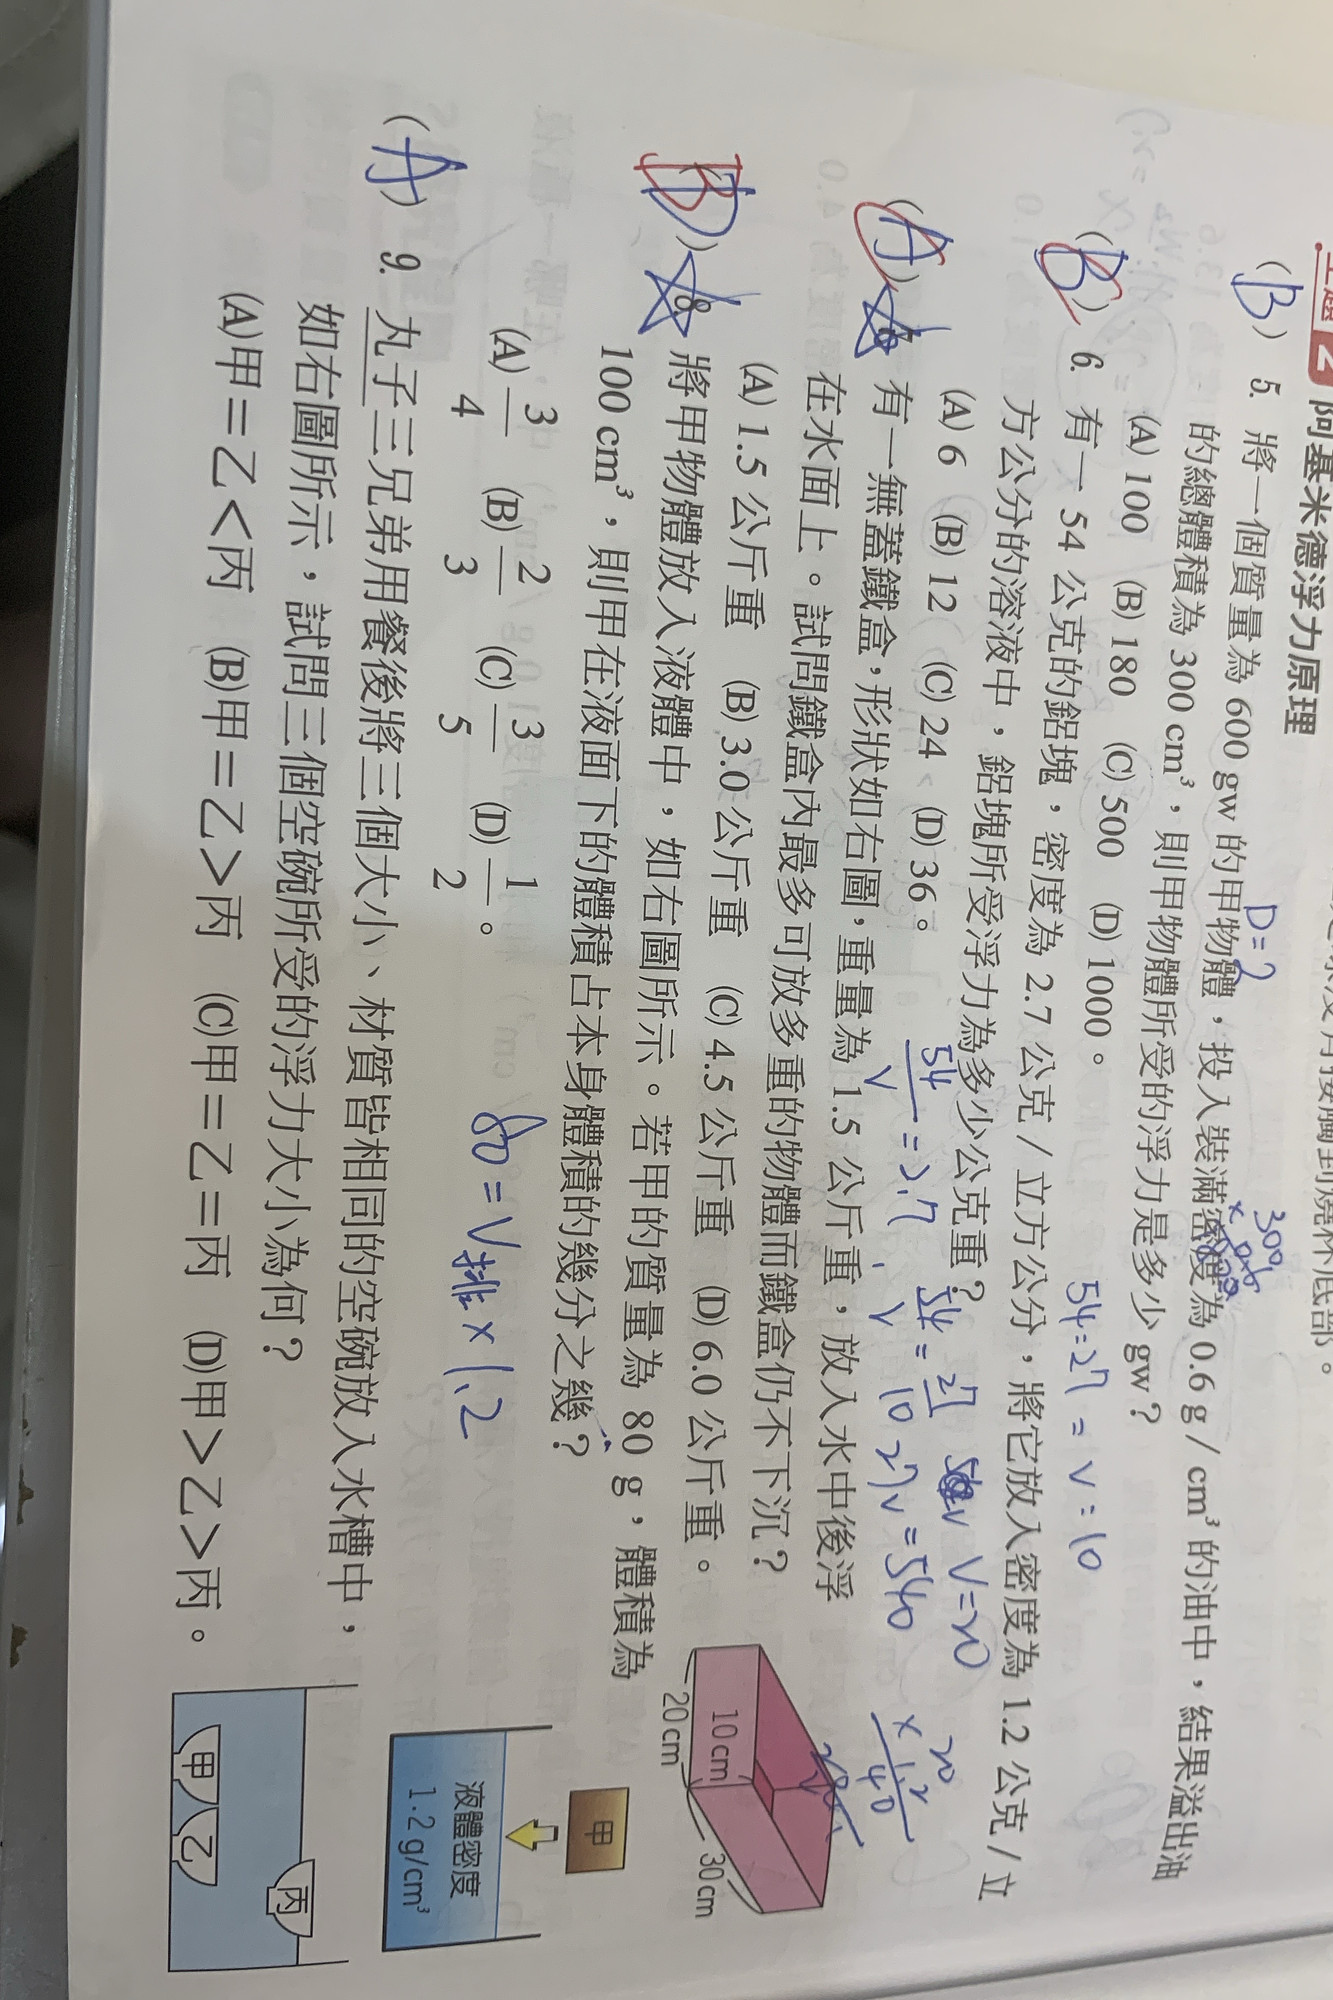 主題2 阿基米德浮力原理
(B) 5. 將一個質量為 600 gw 的甲物體，投入裝滿密度為 0.6 g / cm³ 的油中，結果溢出油
的總體積為 300 cm³，則甲物體所受的浮力是多少 gw？
(A) 100 (B) 180 (C) 500 (D) 1000。
(B) 6. 有一 54 公克的鋁塊，密度為 2.7 公克 / 立方公分，將它放入密度為 1.2 公克 / 立
方公分的溶液中，鋁塊所受浮力為多少公克重？
(A) 6 (B) 12 (C) 24 (D) 36。
(A) 有一無蓋鐵盒，形狀如右圖，重量為 1.5 公斤重，放入水中後浮
在水面上。試問鐵盒內最多可放多重的物體而鐵盒仍不下沉？
(A) 1.5 公斤重 (B) 3.0 公斤重 (C) 4.5 公斤重 (D) 6.0 公斤重。
(B) 8. 將甲物體放入液體中，如右圖所示。若甲的質量為 80 g，體積為
100 cm³，則甲在液面下的體積占本身體積的幾分之幾？
(A) 3/4 (B) 2/3 (C) 3/5 (D) 1/2。
(A) 9. 丸子三兄弟用餐後將三個大小、材質皆相同的空碗放入水槽中，
如右圖所示，試問三個空碗所受的浮力大小為何？
(A)甲＝乙＜丙 (B)甲＝乙＞丙 (C)甲＝乙＝丙 (D)甲＞乙＞丙。
D=?
300
54=27 = V=10
54/V = 2.7
54/V = 27/10
27V = 540
V=20
20
×1.2
40
80 = V排 × 1.2
10 cm
20 cm
30 cm
甲
液體密度
1.2 g/cm³
丙
甲
乙